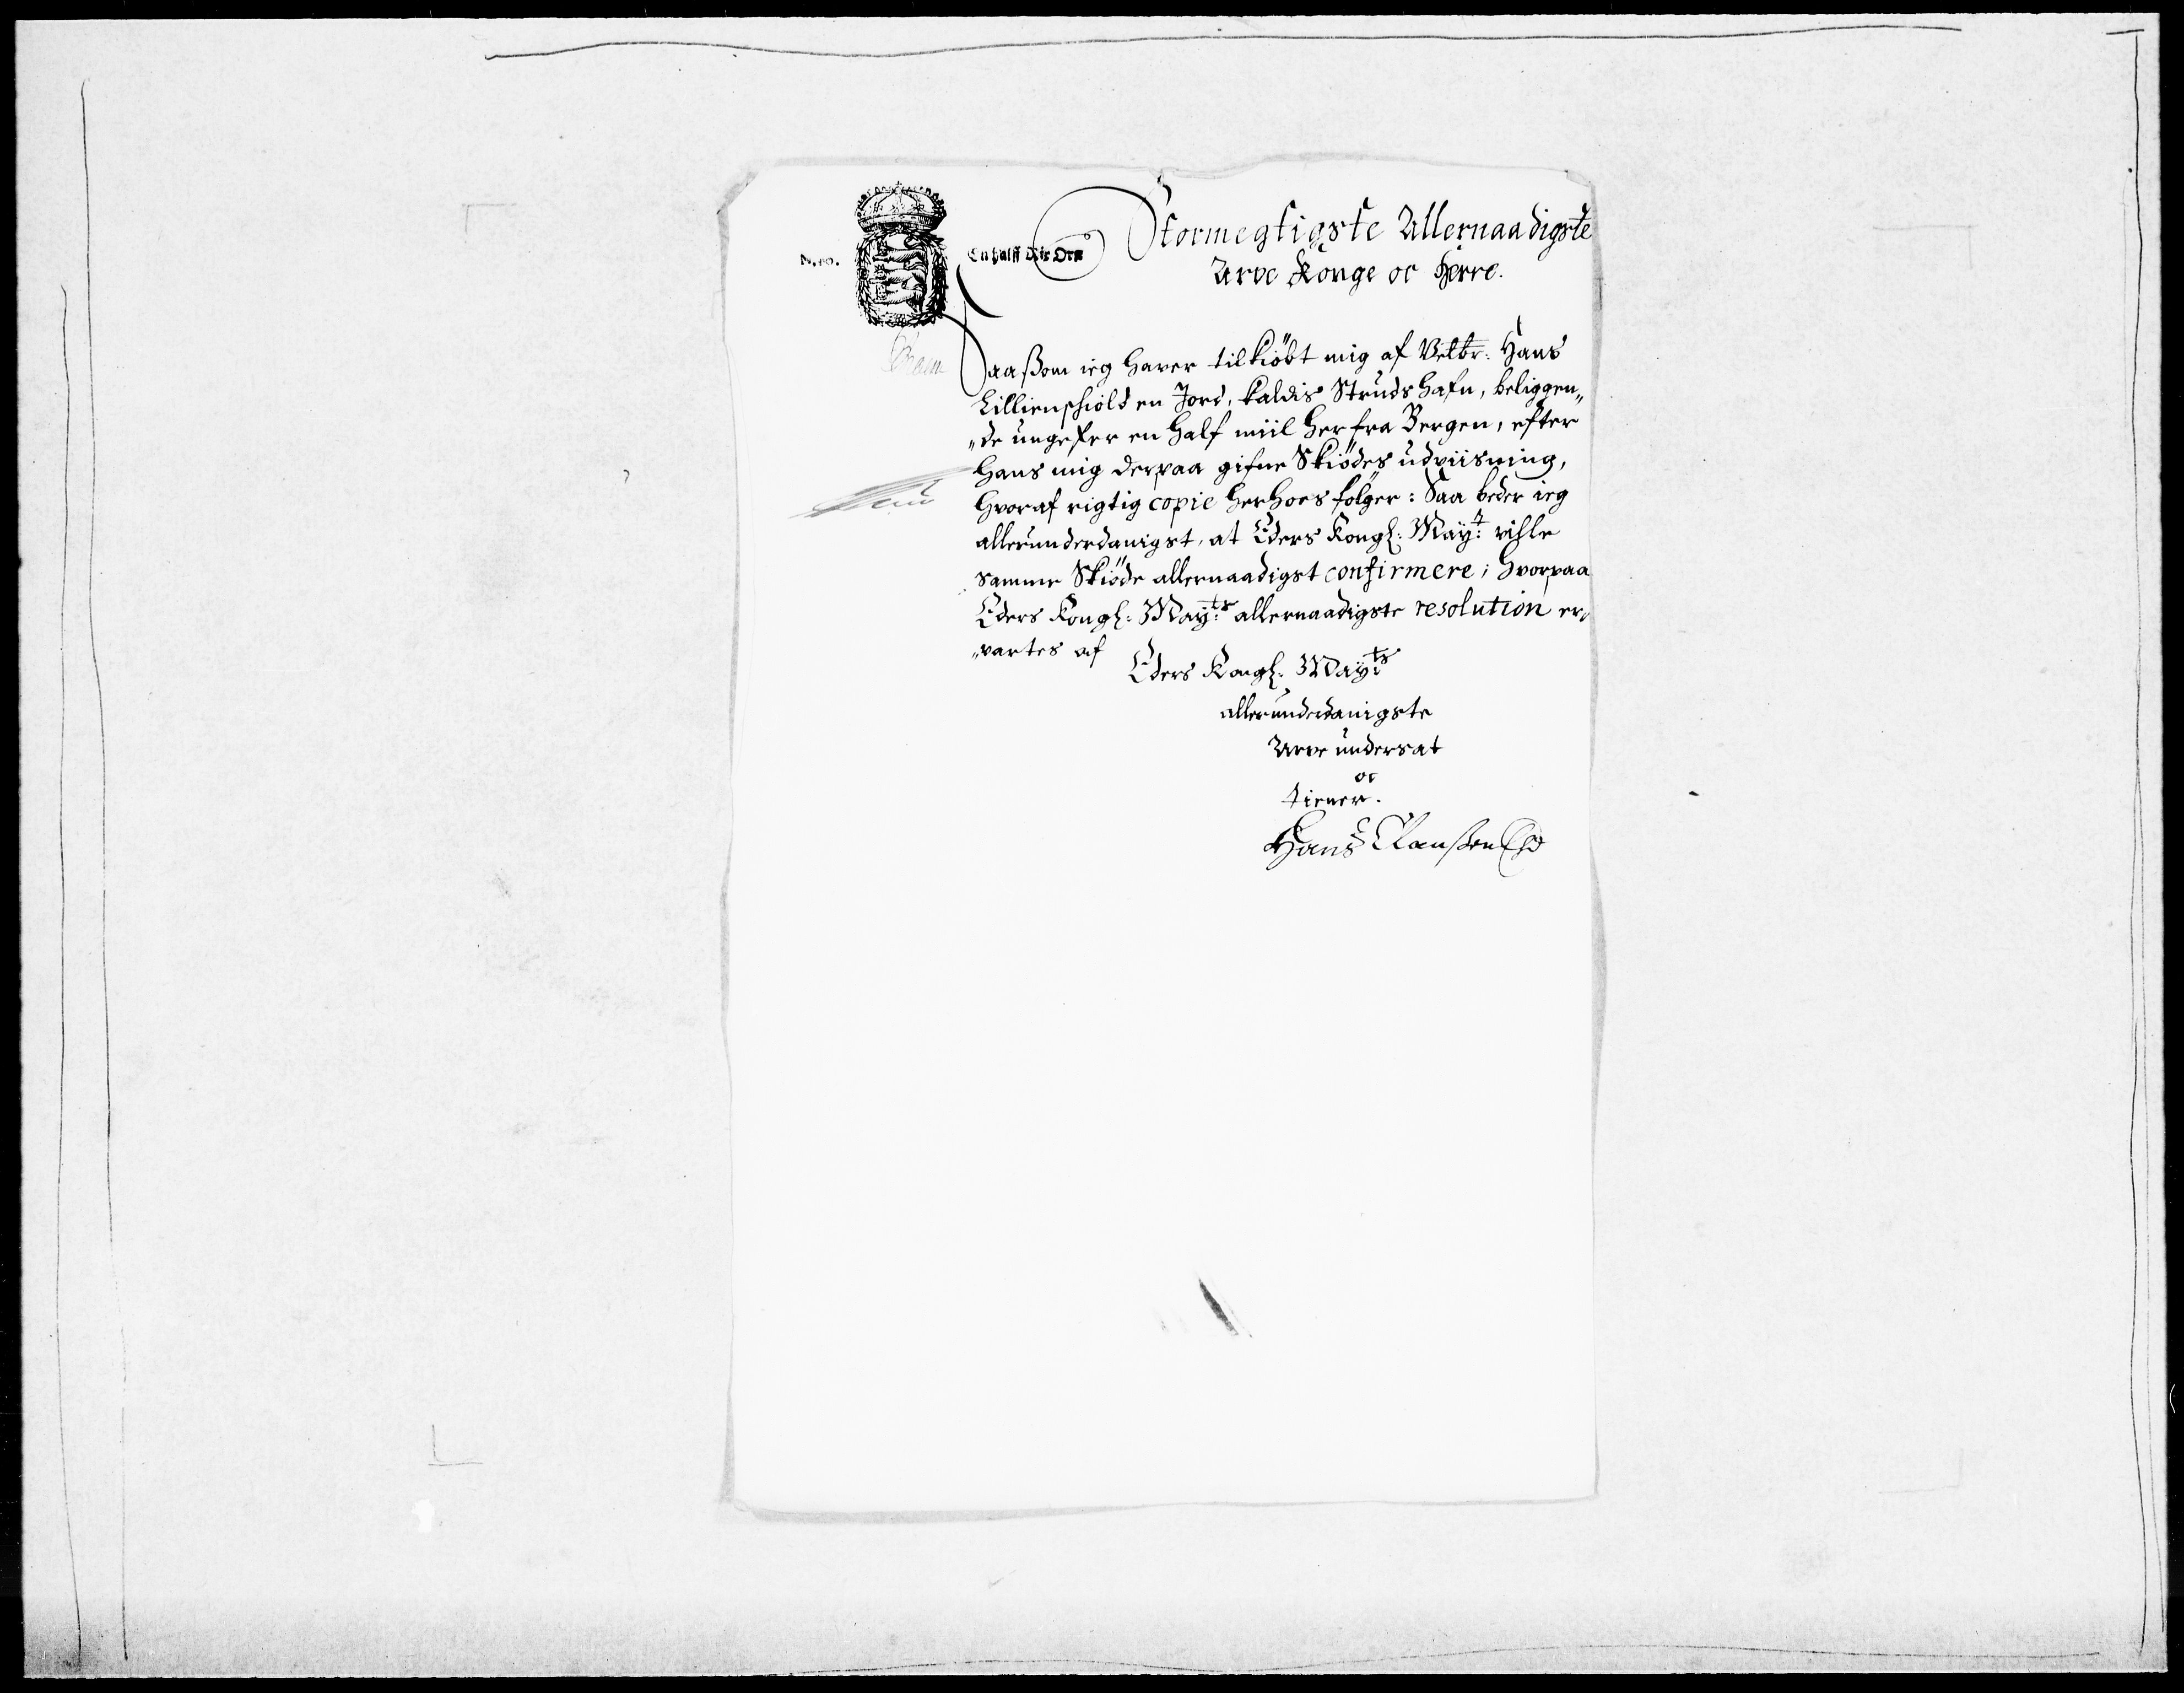 N. 10.
En halff Rix Ort
Stormegtigste Allernaadigste
Arve Konge oc Herre.
Saaßom ieg hafver tilkiöbt mig af Velbr: Hans
Lillienschiöld en Jord, kaldis Strudshafn, beliggen„
„de ungefer en half miil her fra Bergen, efter
hans mig derpaa gifne Skiödes udviisning,
hvoraf rigtig copie herhoes fölger: Saa beder ieg
allerunderdanigst, at Eders Kongl: Mayt: ville
samme Skiöde allernaadigst confirmere; hvorpaa
Eders Kongl: Mayts: allernaadigste resolution er„
„vartes af
Eders Kongl: Mayts:
allerunderdanigste
Arve undersat
oc
tiener.
Hans Clausßen